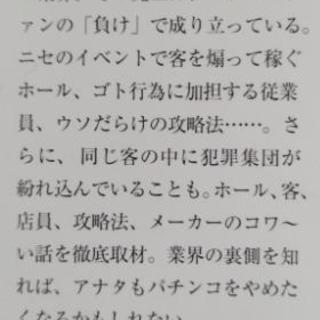 ァンの「負け」で成り立っている。
ニセのイベントで客を煽って稼ぐ
ホール、ゴト行為に加担する従業
員、ウソだらけの攻略法……。さ
らに、同じ客の中に犯罪集団が
紛れ込んでいることも。ホール、客、
店員、攻略法、メーカーのコワ〜
い話を徹底取材。業界の裏側を知
れば、アナタもパチンコをやめた
くなるかもしれない